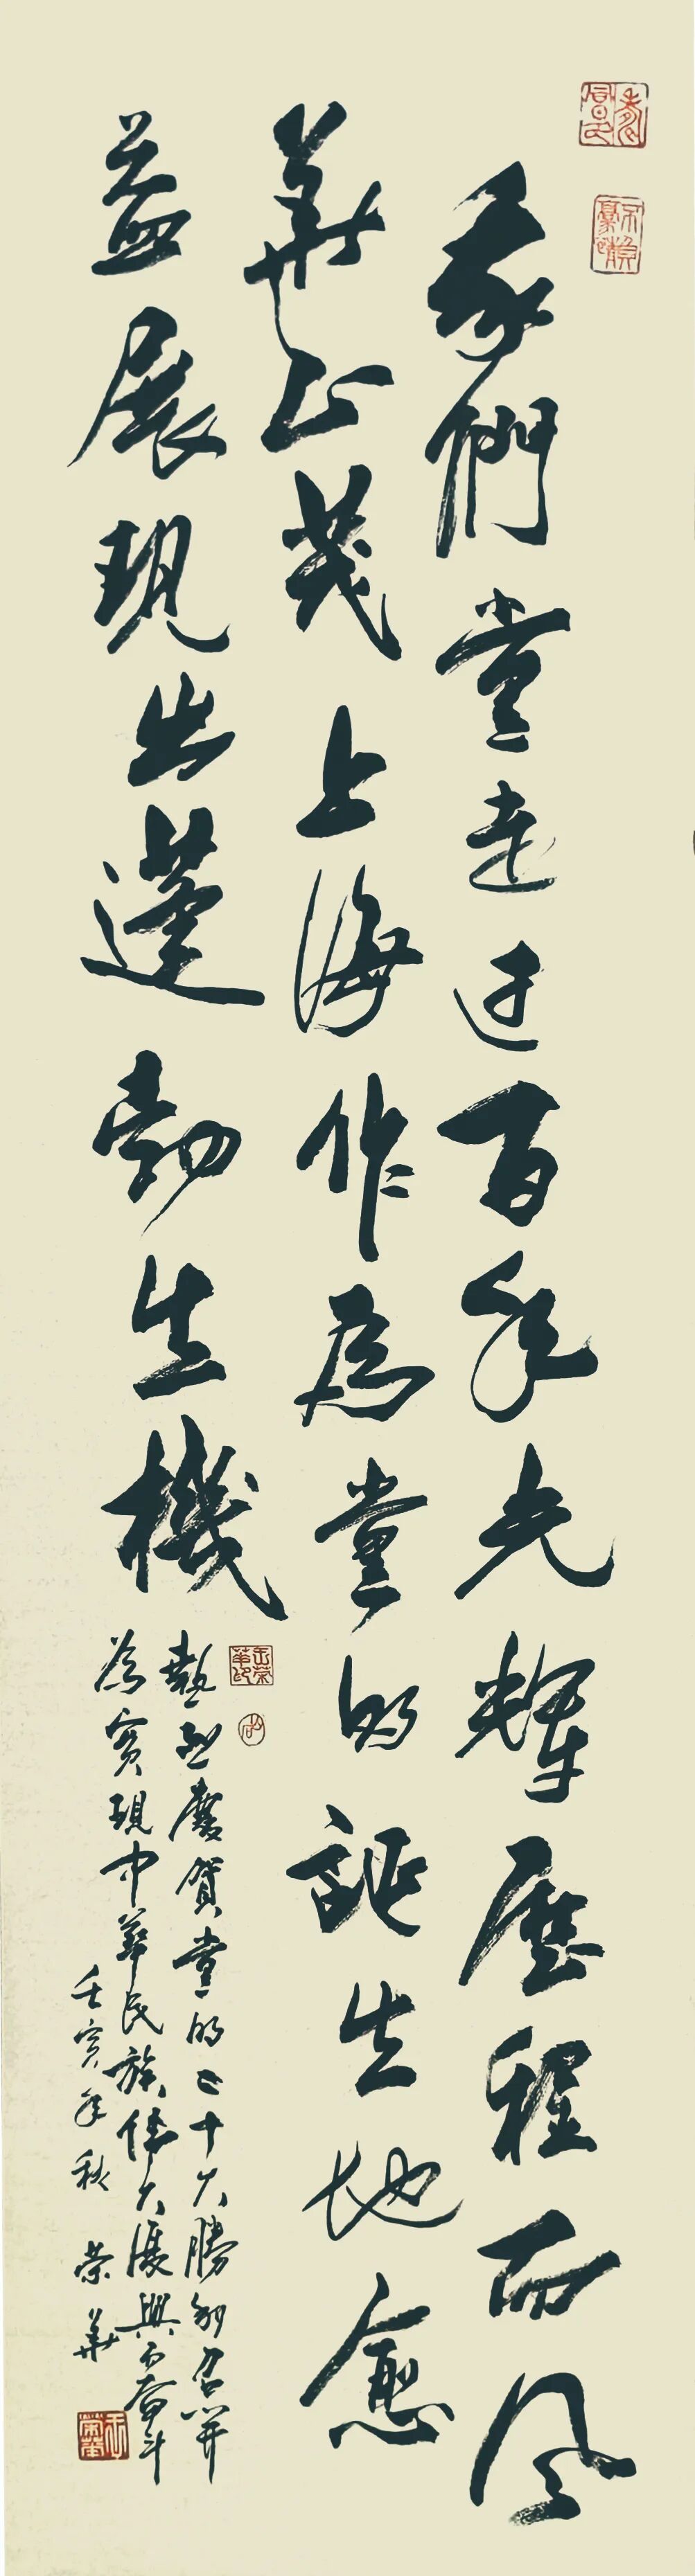 我們黨走过百年光輝歷程而风
華正茂上海作為黨的誕生地愈
益展現出蓬勃生機
熱烈慶賀黨的二十大勝利召開
為實現中華民族偉大復興而奋斗
壬寅年秋 荣華